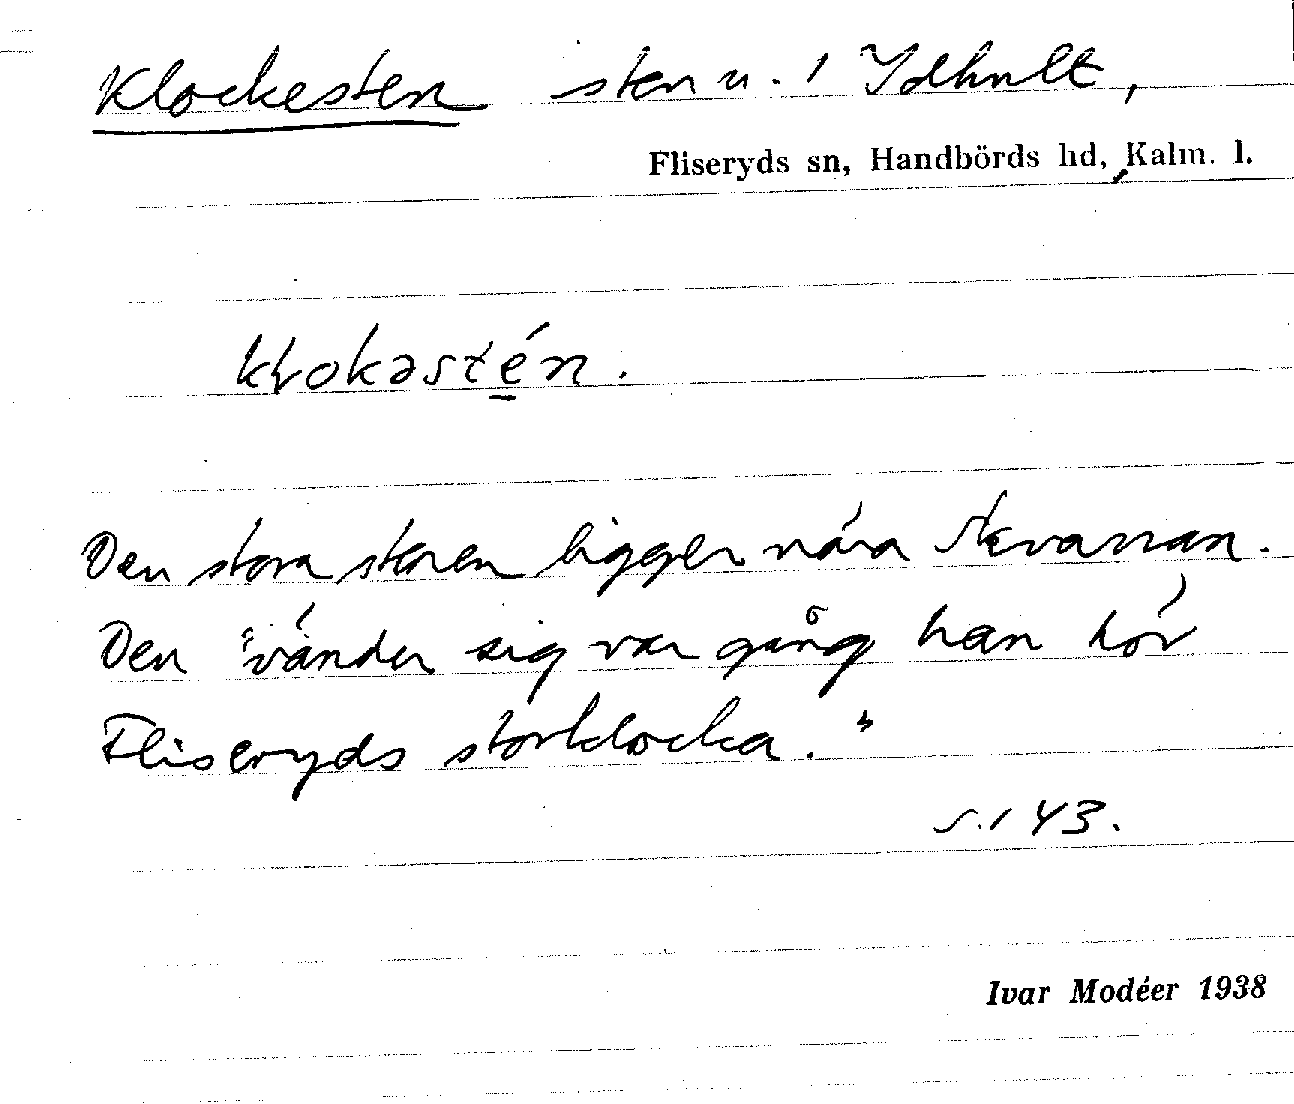 Klockesten sten u. 1 Ydhult,
Fliseryds sn, Handbörds hd, Kalm. l.
klokəstén.
Den stora stenen ligger nära
Den "vänder sig var gång han hör
Fliseryds storklocka."
s. 143.
Ivar Modéer 1938